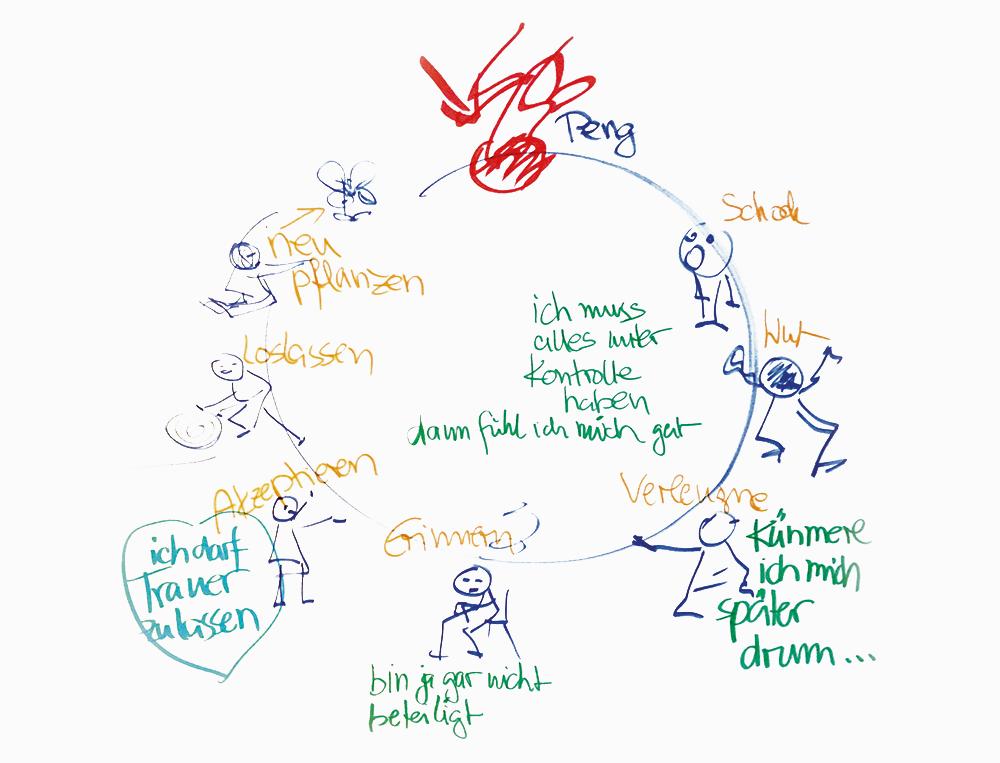 Peng
Schock
Wut
ich muss
alles unter
Kontrolle
haben
dann fühl ich mich gut
Verleugne
Kümmere
ich mich
später
drum...
Erinnern
bin ja gar nicht
beteiligt
Akzeptieren
ich darf
Trauer
zulassen
Loslassen
neu
pflanzen